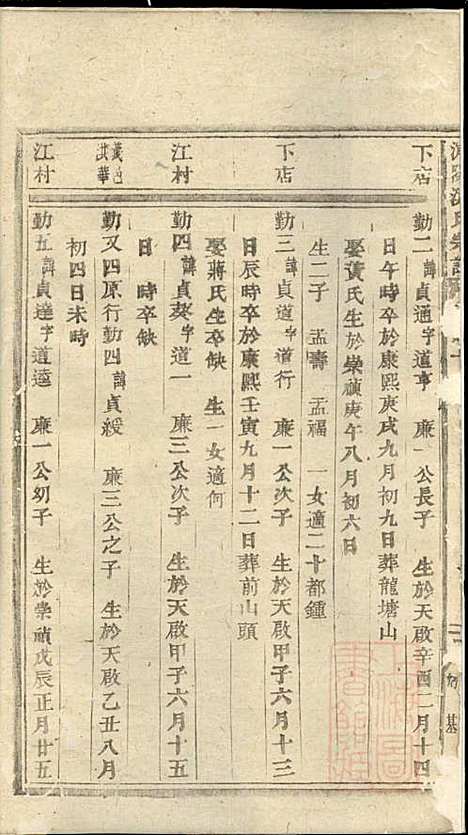 下店
勤二諱貞通字道亨　廉一公長子　生於天啟辛酉二月十四
日午時卒於康熙庚戌九月初九日葬龍塘山
娶黃氏生於崇禎庚午八月初六日
生二子　孟壽　孟福　一女適二十都鍾
下店
勤三諱貞道字道行　廉一公次子　生於天啟甲子六月十三
日辰時卒於康熙壬寅九月十二日葬前山頭
娶蔣氏生卒缺　生一女適何
江村
勤四諱貞葵字道一　廉三公次子　生於天啟甲子六月十五
日　時卒缺
洪華
勤又四原行勤四諱貞綬　廉三公之子　生於天啟乙丑八月
初四日未時
江村
勤五諱貞達字道遠　廉一公幼子　生於崇禎戊辰正月廿五